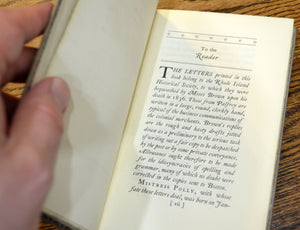 To the
Reader
THE LETTERS printed in this
book belong to the Rhode Island
Historical Society, to which they were
bequeathed by Moses Brown upon his
death in 1836. Those from Palfrey are
written in a large, round, clerkly hand,
typical of the business communications of
the colonial merchants. Brown's replies
were the rough and hasty drafts jotted
down as a preliminary to the serious task
of writing out a fair copy to be despatched
by the post or by some private conveyance.
Allowance ought therefore to be made
for the idiocyncrasies of spelling and
grammar, many of which no doubt were
corrected in the copies sent to Boston.
MISTRESS POLLY, with whose
fate these letters deal, was born on Jan-
[ vii ]